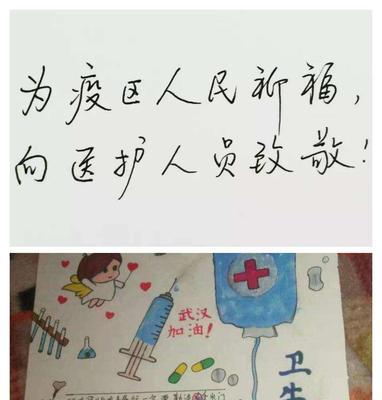 为疫区人民祈福，
向医护人员致敬！
武汉
加油！
卫